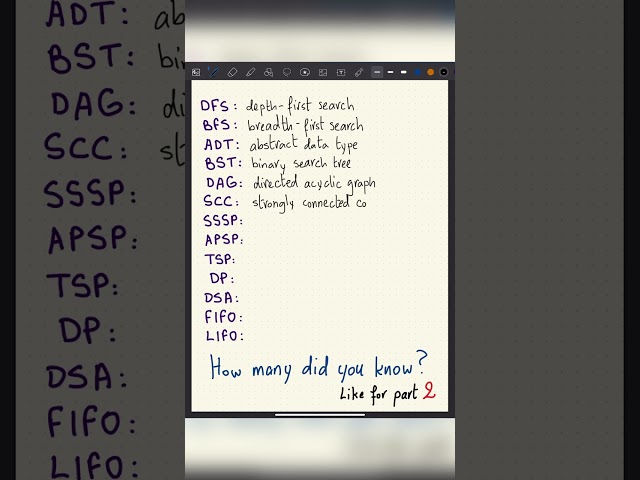 DFS: depth-first search
BFS: breadth-first search
ADT: abstract data type
BST: binary search tree
DAG: directed acyclic graph
SCC: strongly connected co
SSSP:
APSP:
TSP:
DP:
DSA:
FIFO:
LIFO:
How many did you know?
Like for part 2
ADT: ab
BST: bin
DAG: di
SCC: st
SSSP:
APSP:
TSP:
DP:
DSA:
FIFO:
LIFO: